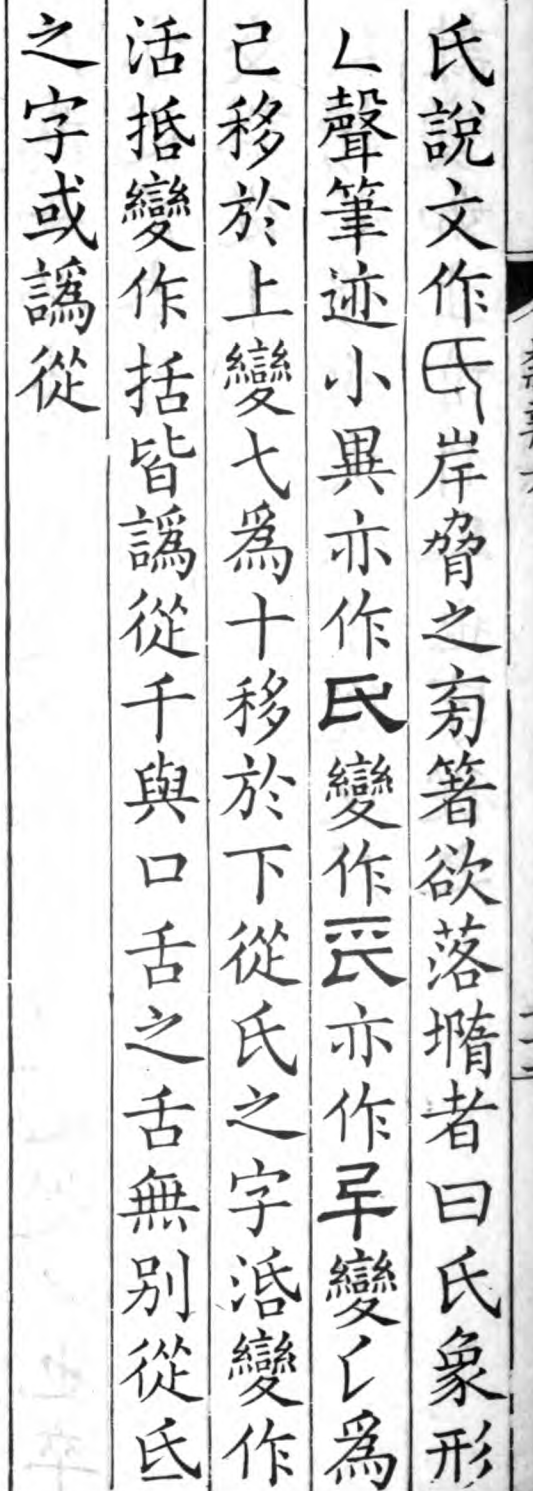 氏說文作岸脅之㫄箸欲落墯者曰氏象形
聲筆迹小異亦作氏變作亦作變為
己移於上變七為十移於下從氏之字變作
活變作括皆譌從千與口舌之舌無別從氐
之字或譌從